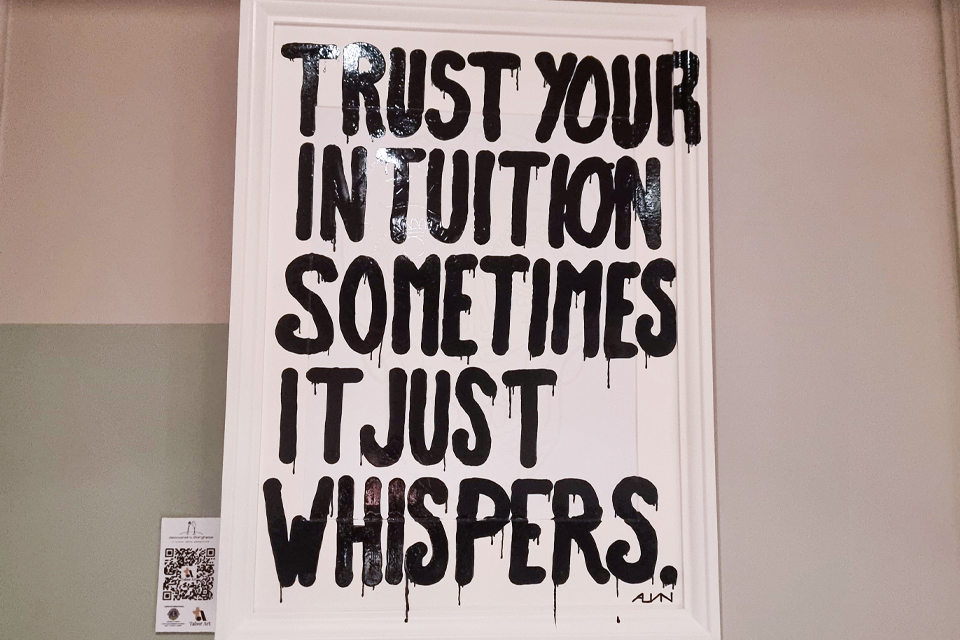 TRUST YOUR
INTUITION
SOMETIMES
IT JUST
WHISPERS.